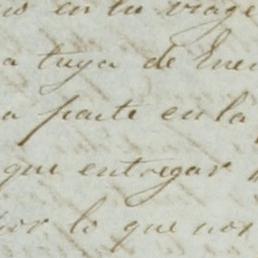 en tu viage
a tuya de Ene
a parte en la
que entregar
por lo que nor